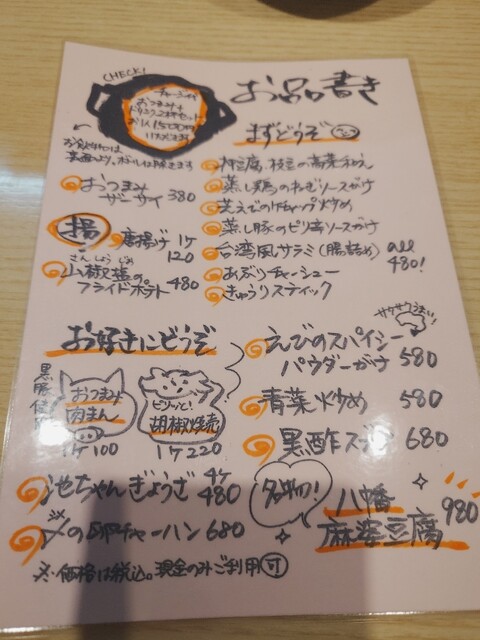 CHECK!
チャージ代
おつまみ+
ドリンク2杯セット
お1人1500円
お品書き
まずどうぞ
押豆腐、枝豆の高菜和え
蒸し鶏のねぎソースがけ
芝えびのケチャップ炒め
蒸し豚のピリ辛ソースがけ
台湾風サラミ(腸詰め)
あぶりチャーシュー
きゅうりスティック
all
480!
おつまみ
ザーサイ 380
揚
唐揚げ 1ケ
120
さんしょうじお
山椒塩の
フライドポテト 480
お好きにどうぞ
おつまみ
肉まん
1ケ100
ピリッと!
胡椒焼売
1ケ220
池ちゃんぎょうざ 4ケ
480
〆の卵チャーハン 680
えびのスパイシー
パウダーがけ 580
青菜炒め 580
黒酢スブタ 680
名物!
八幡
麻婆豆腐
980
※価格は税込。現金のみご利用可